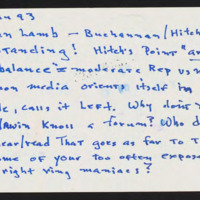 93
n Lamb — Buchannan/Hitch
tanding! Hitch's Point "ar
balance" = moderate Rep us n
on media orients itself in
e, calls it LEFT. Why don't
a forum? Who d
ear/read That goes as far To T
ome of your too often expose
right ring maniacs?